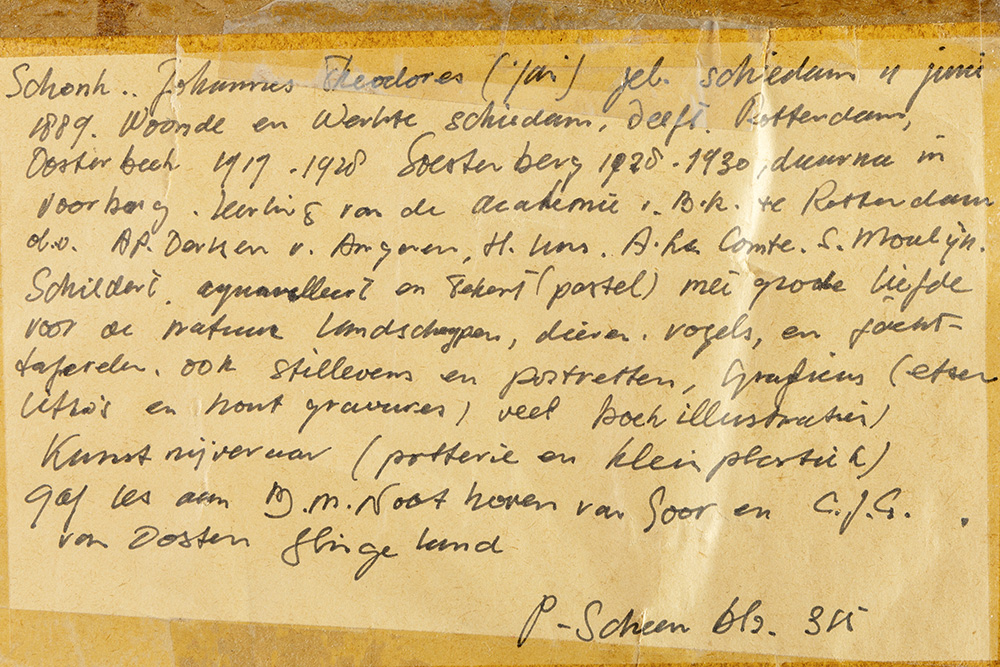 Schonk.. Johannes Theodores (Jan) geb. schiedam 11 juni
1889. Woonde en werkte schiedam, Delft. Rotterdam,
Oosterbeek 1919.1928 Soesterberg 1928.1930, daarna in
voorburg. leerling van de academie v. B.K. te Rotterdam
o.a. AP. Derksen v. Angeren, H. A. Le Comte. S. Moulijn.
Schildert, aquarelleert en tekent (pastel) met grote liefde
voor de natuur landschappen, dieren. vogels, en jacht-
taferelen. ook stillevens en portretten, Graficus (etsen
litho's en hout gravures) veel boek illustraties)
Kunst nijveraar (potterie en klein plastiek)
gaf les aan B.M. Noothoven van Goor en C.J.G.
van Oosten Slingeland
P-Scheen blz. 315